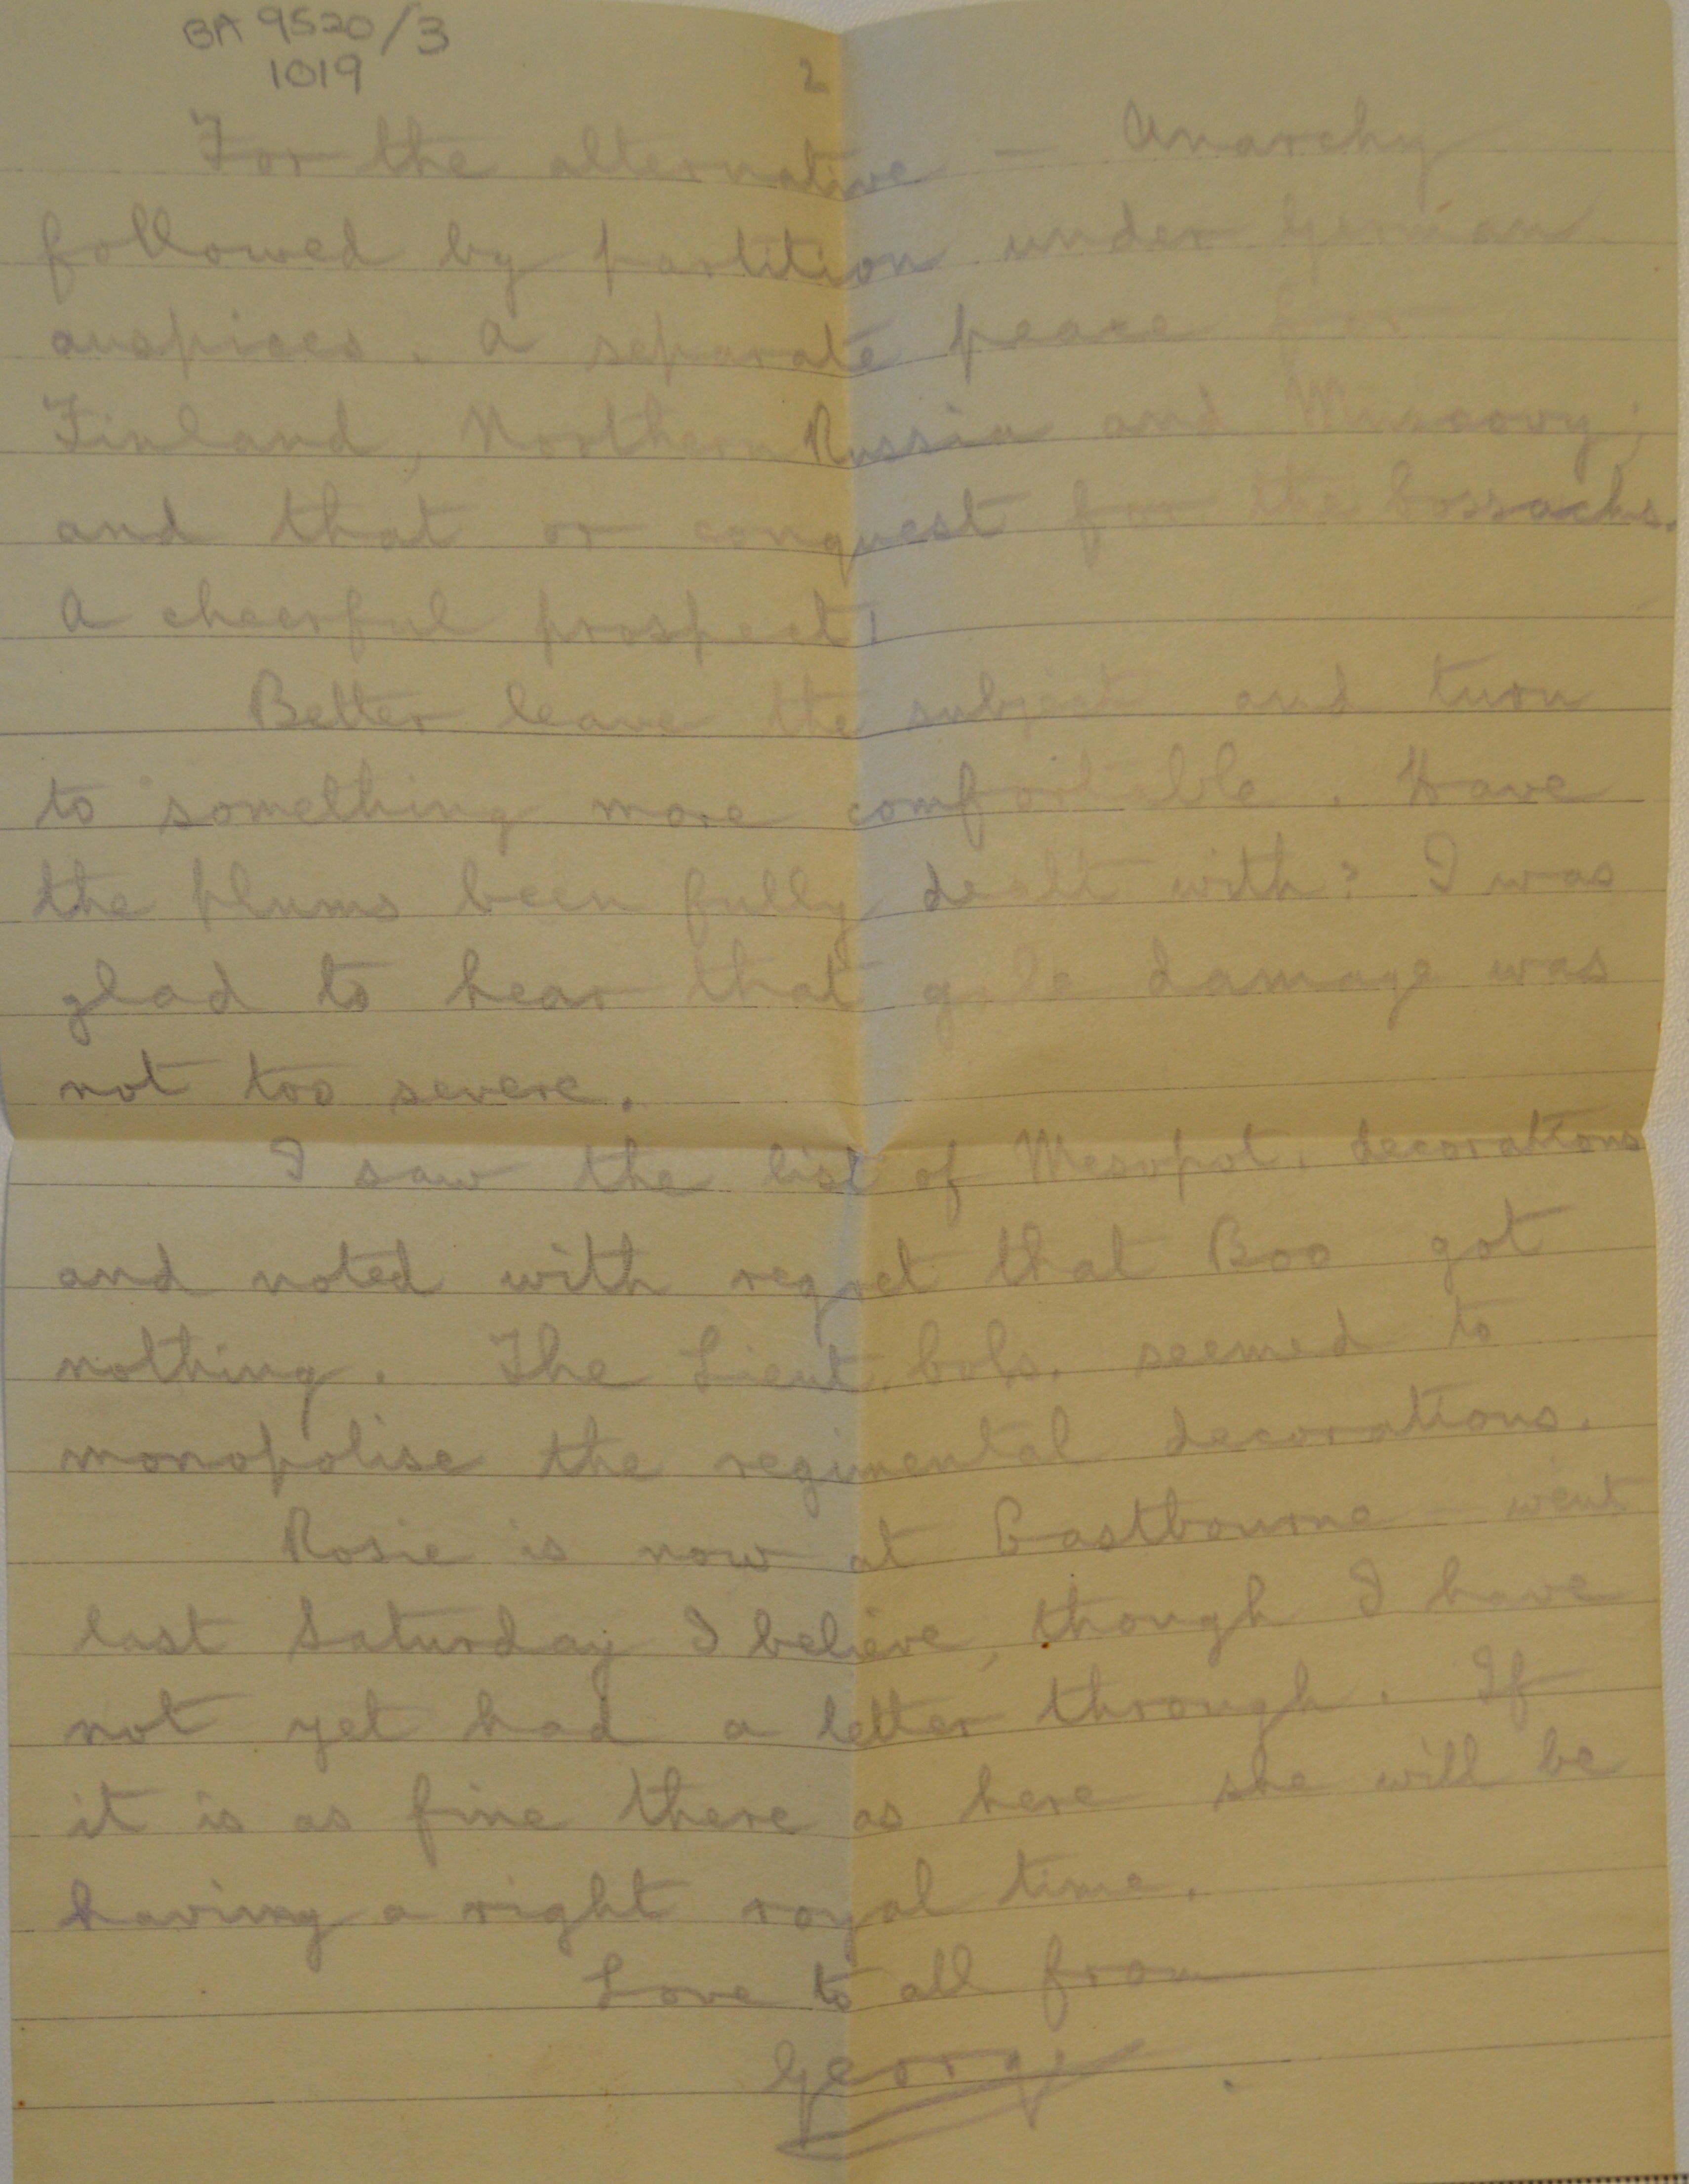 BA 9520/3
1019
2
For the alternative - Anarchy
followed by partition under German
auspices. A separate peace for
Finland, Northern Russia and Muscovy;
and that or conquest for the Cossacks.
A cheerful prospect!
Better leave the subject and turn
to something more comfortable. Have
the plums been fully dealt with? I was
glad to hear that gale damage was
not too severe.
I saw the list of Mesopot. decorations
and noted with regret that Boo got
nothing. The Lieut. Cols. seemed to
monopolise the regimental decorations.
Rosie is now at Eastbourne - went
last Saturday I believe, though I have
not yet had a letter through. If
it is as fine there as here she will be
having a right royal time.
Love to all from
George